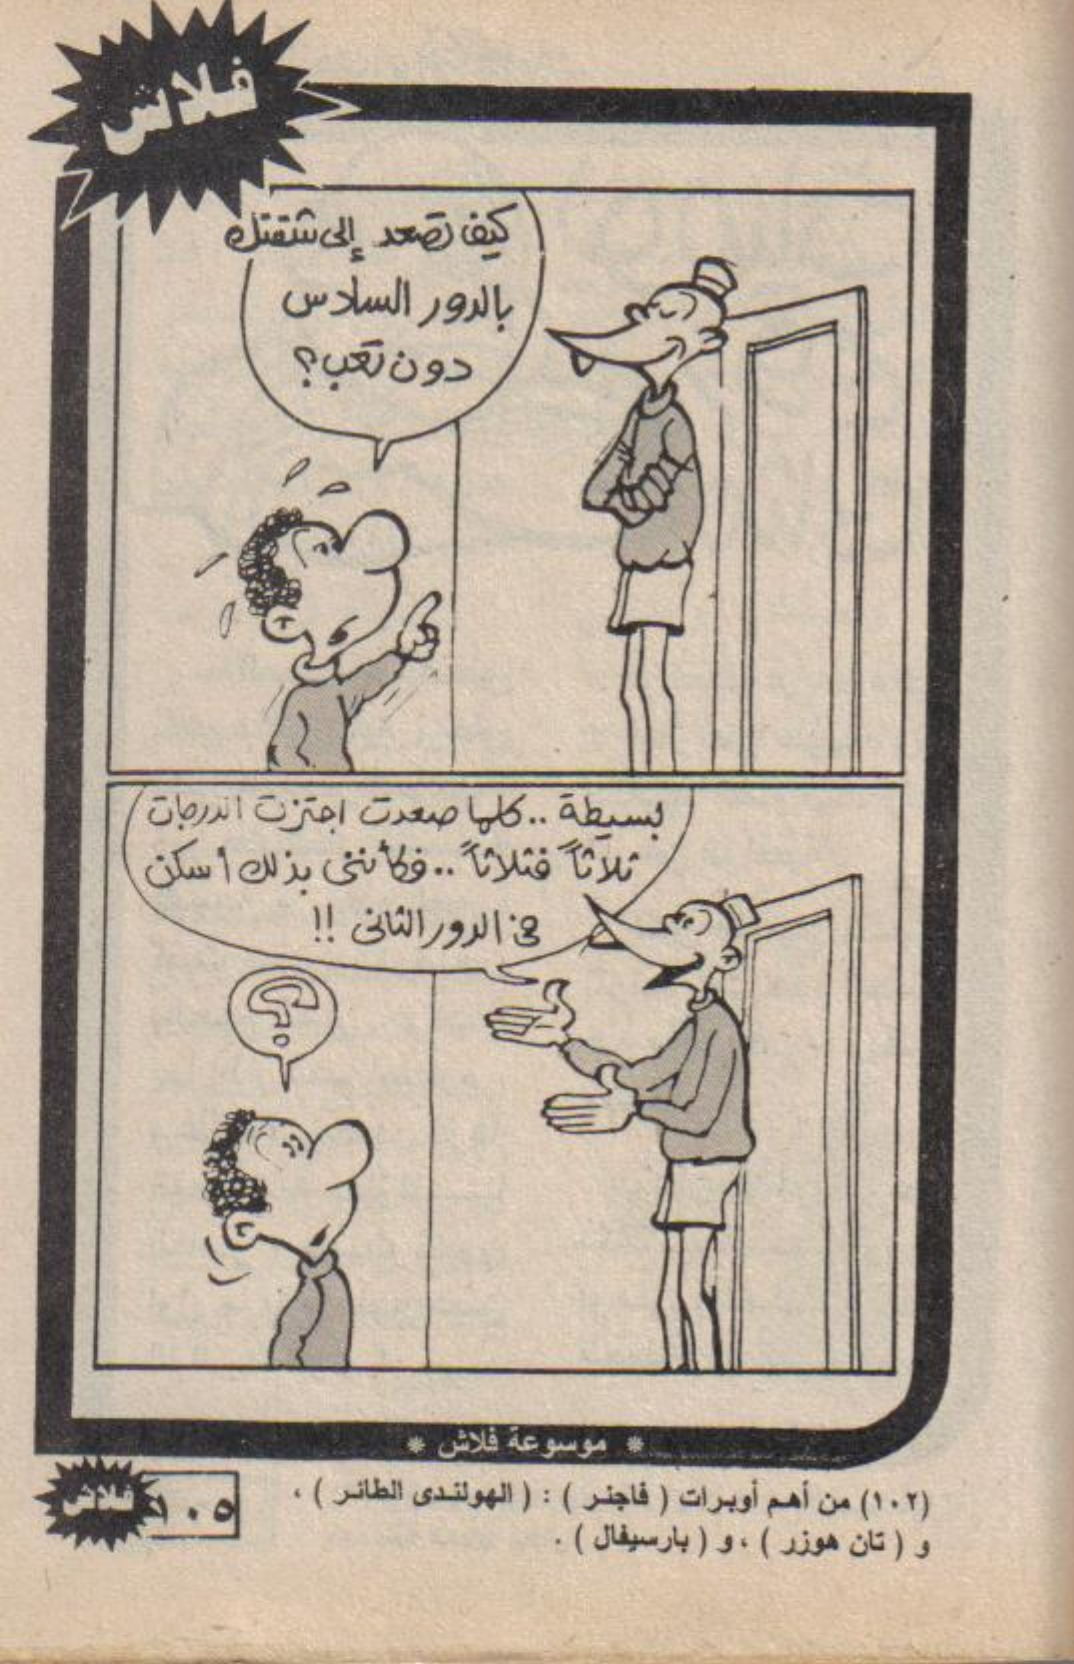 فلاش
كيف تصعد إلى شقتك
بالدور السادس
دون تعب؟
بسيطة .. كلما صعدت اجتزت الدرجات
ثلاثاً فثلاثاً .. فكأننى بذلك أسكن
فى الدور الثانى !!
؟
* موسوعة فلاش *
(١٠٢) من أهم أوبرات ( فاجنر ) : ( الهولندى الطائر ) ،
و ( تان هوزر ) ، و ( بارسيفال ) .
١٠٥
فلاش